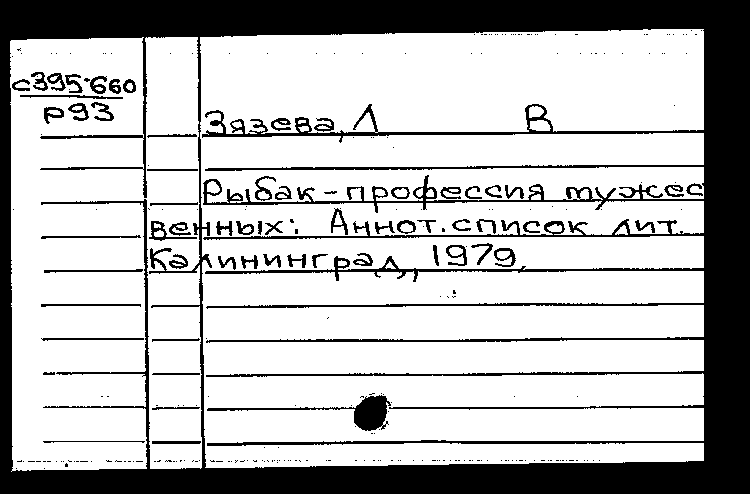 с395.660
р93
Зязева, Л В
Рыбак - профессия мужес
венных: Аннот. список лит.
Калининград, 1979.